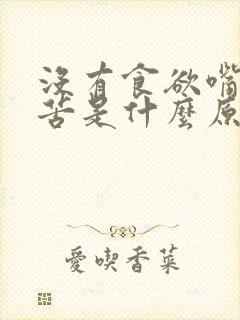 没有食欲嘴
苦是什麼原
愛喫香菜